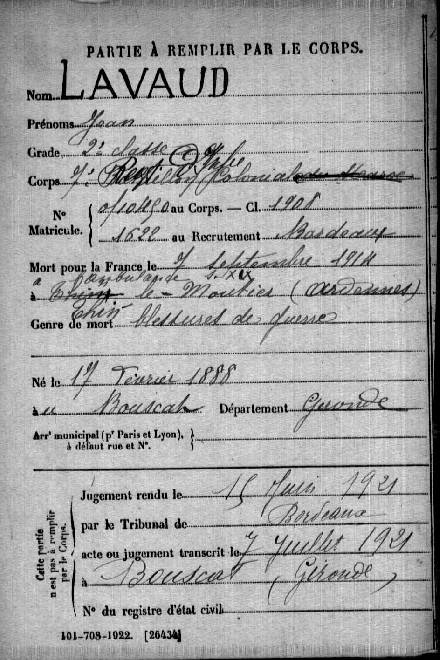 PARTIE À REMPLIR PAR LE CORPS.
Nom LAVAUD
Prénoms Jean
Grade 2e classe
Corps 7e Regt D'Infie Coloniale
No Matricule. 0/10450 au Corps. — Cl. 1908
1622 au Recrutement Bordeaux
Mort pour la France le 7 septembre 1914
à l'ambulance
à Thin le-Moutier (Ardennes)
Thin
Genre de mort blessures de guerre
Né le 17 Février 1888
à u Bouscat Département Gironde
Arrt municipal (pr Paris et Lyon),
à défaut rue et No.
Cette partie n'est pas à remplir par le Corps.
Jugement rendu le 15 Juin 1921
par le Tribunal de Bordeaux
acte ou jugement transcrit le 7 Juillet 1921
à Bouscat (Gironde)
No du registre d'état civil
101-708-1922. [26434]